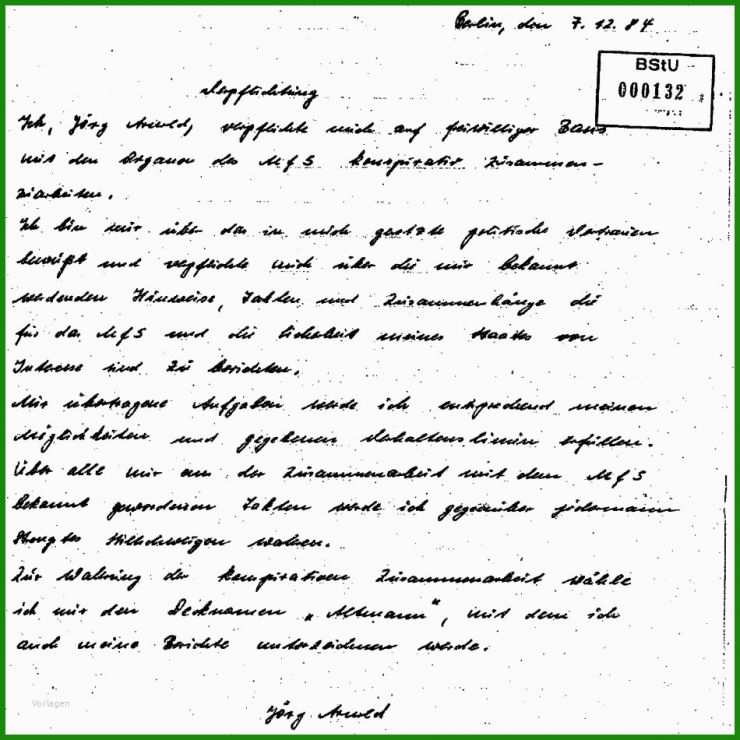 Berlin, den 7.12.84
BStU
000132
Verpflichtung
Ich, Jörg Arnold, verpflichte mich auf freiwilliger Basis
mit den Organen des MfS konspirativ zusammen-
zuarbeiten.
Ich bin mir über das in mich gesetzte politische Vertrauen
bewußt und verpflichte mich über die mir bekannt
werdenden Hinweise, Fakten und Zusammenhänge die
für das MfS und die Sicherheit meines Staates von
Interesse sind zu berichten.
Mir übertragene Aufgaben werde ich entsprechend meinen
Möglichkeiten und gegebenen Verhaltenslinien erfüllen.
Über alle mir an der Zusammenarbeit mit dem MfS
bekannt gewordenen Fakten werde ich gegenüber jedermann
strengstes Stillschweigen wahren.
Zur Wahrung der konspirativen Zusammenarbeit wähle
ich mir den Decknamen „Altmann", mit dem ich
auch meine Berichte unterzeichnen werde.
Jörg Arnold
Vorlagen